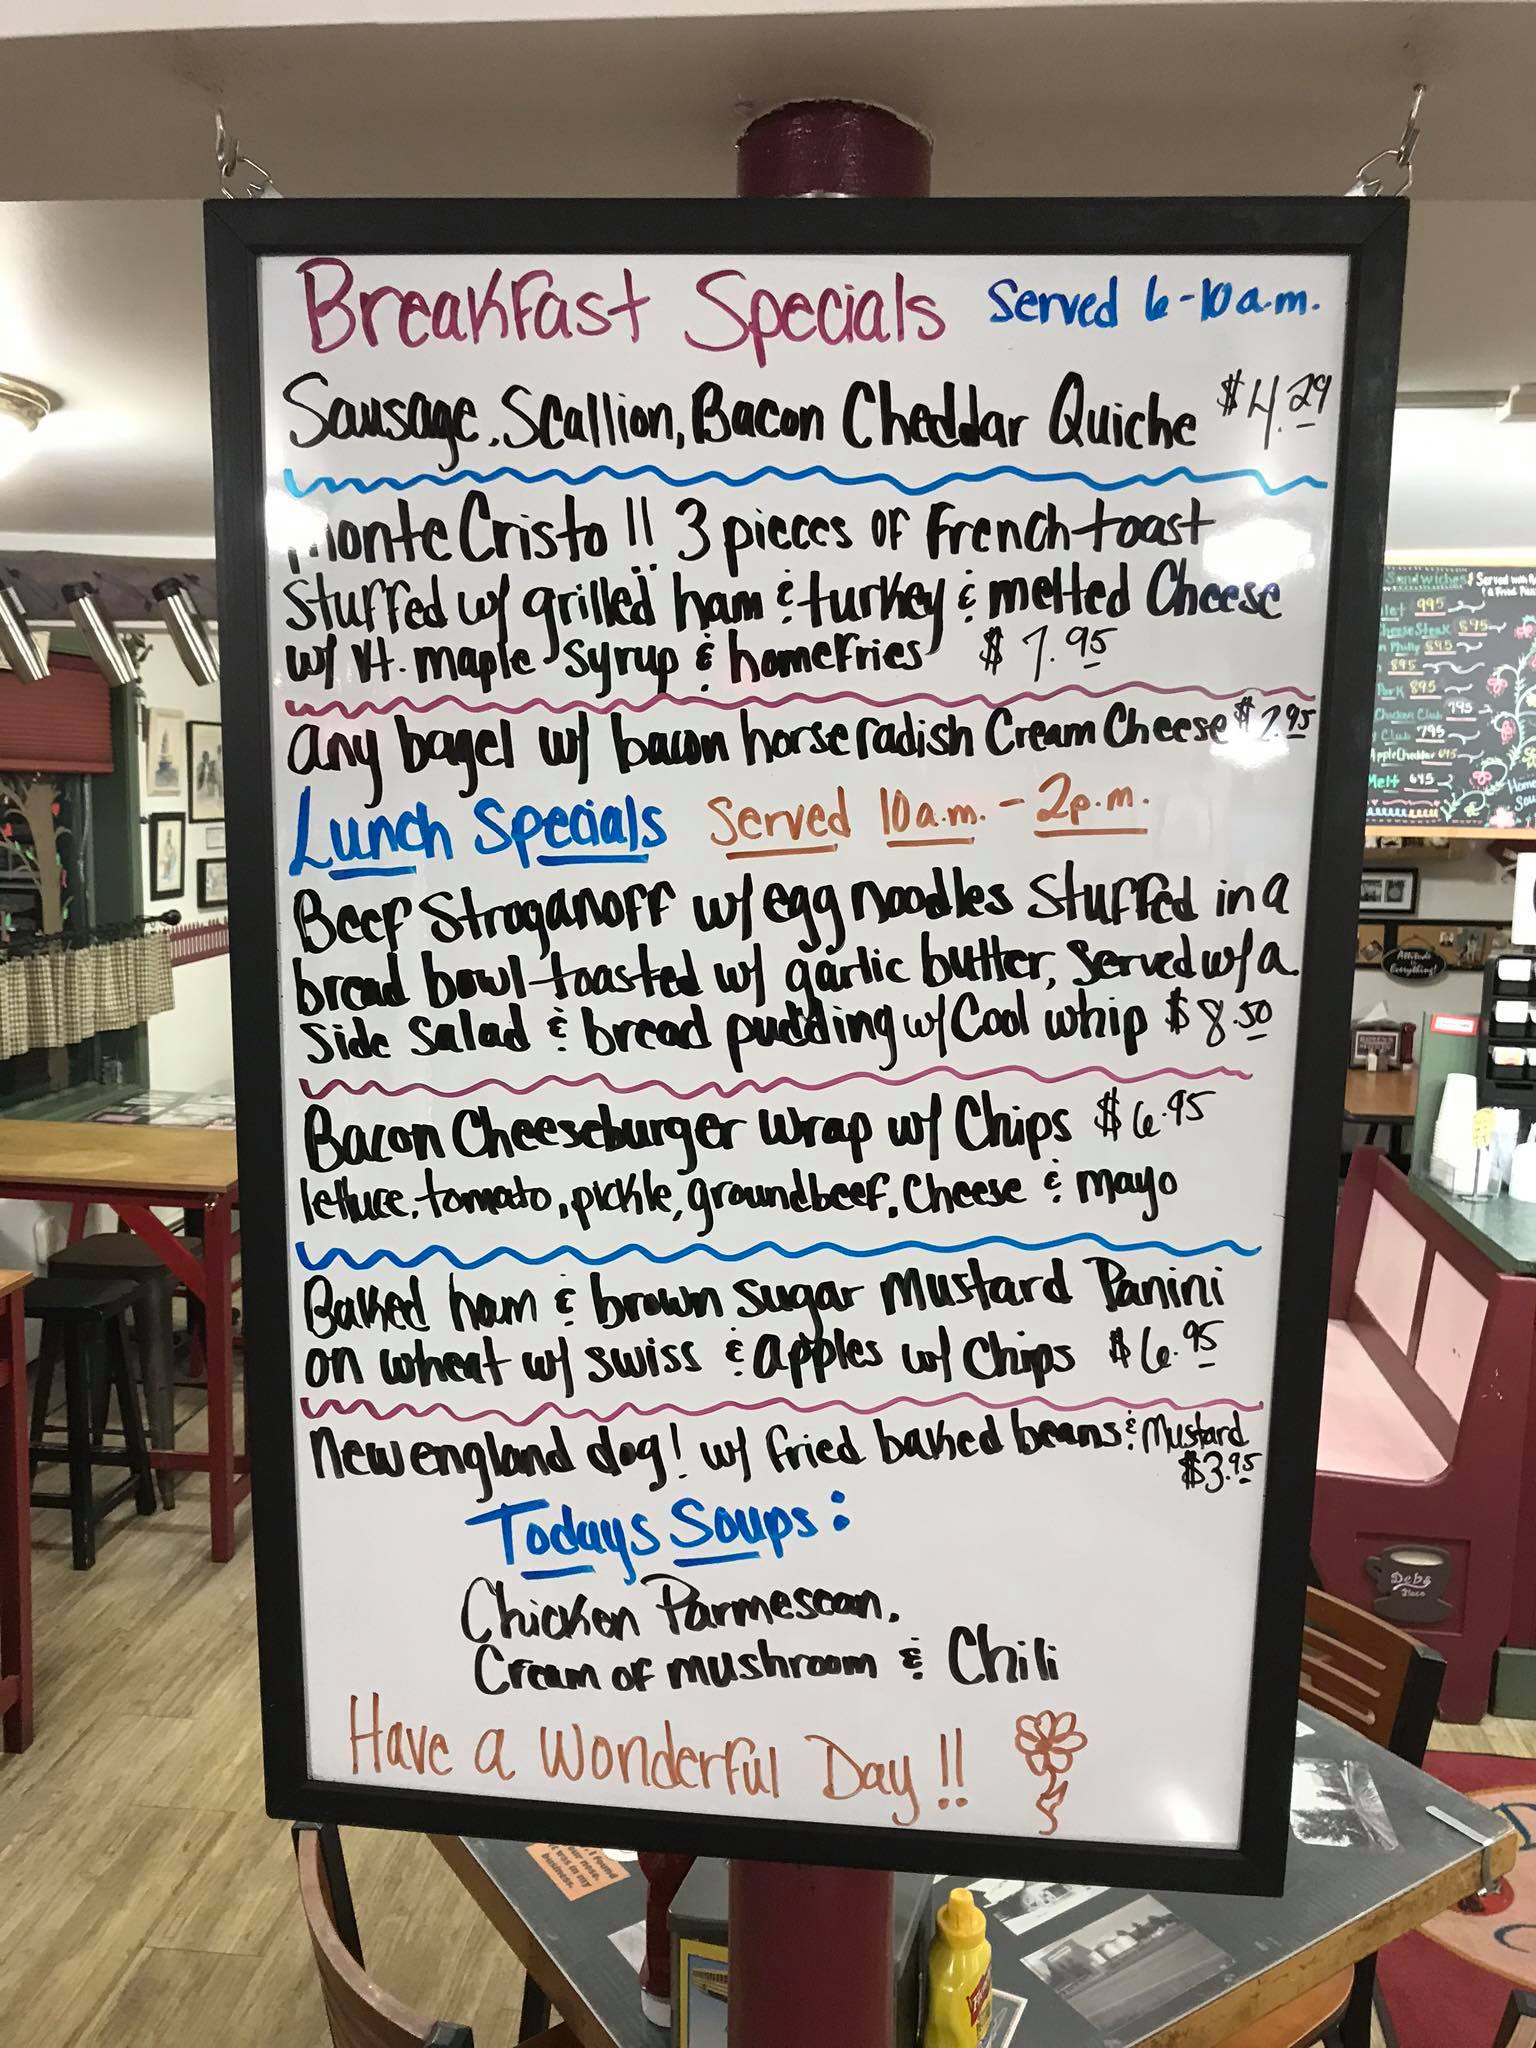 Breakfast Specials Served 6-10a.m.
Sausage, Scallion, Bacon Cheddar Quiche $4.29
Monte Cristo!! 3 pieces of French toast
Stuffed w/ grilled ham & turkey & melted Cheese
w/ Vt. maple syrup & homefries $7.95
any bagel w/ bacon horseradish Cream Cheese $2.95
Lunch Specials Served 10a.m. - 2p.m.
Beef Stroganoff w/ egg noodles Stuffed in a
bread bowl toasted w/ garlic butter, served w/ a
side salad & bread pudding w/ Cool whip $8.50
Bacon Cheeseburger wrap w/ Chips $6.95
lettuce, tomato, pickle, ground beef, Cheese & mayo
Baked ham & brown sugar Mustard Panini
on wheat w/ swiss & apples w/ Chips $6.95
New england dog! w/ fried baked beans & Mustard
$3.95
Todays Soups:
Chicken Parmescan,
Cream of mushroom & Chili
Have a Wonderful Day!!
Sandwiches Served
995
CheeseSteak 895
Philly 895
895
Pork 895
Chicken Club 795
Club 795
Apple Cheddar 645
Melt 645
Attitude
is
Everything!
Debs
Place